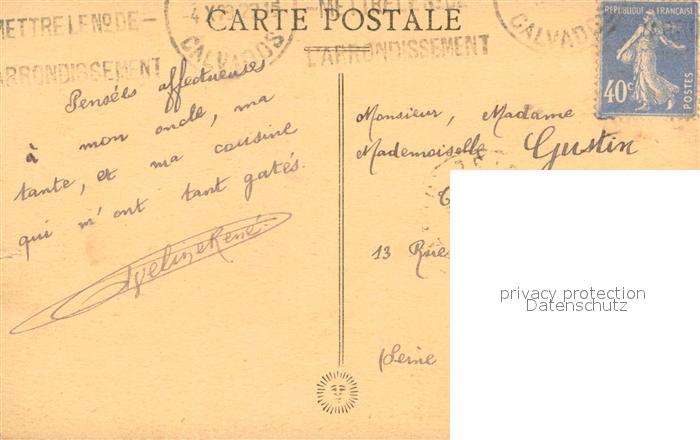 CARTE POSTALE
METTRE LE NO DE
L'ARRONDISSEMENT
CALVADOS
METTRE LE NO DE
L'ARRONDISSEMENT
CALVADOS
RÉPUBLIQUE FRANÇAISE
40c
POSTES
Pensées affectueuses
à mon oncle, ma
tante, et ma cousine
qui m'ont tant gatés.
Monsieur, Madame
Mademoiselle Gustin
13 Rue
Seine
privacy protection
Datenschutz